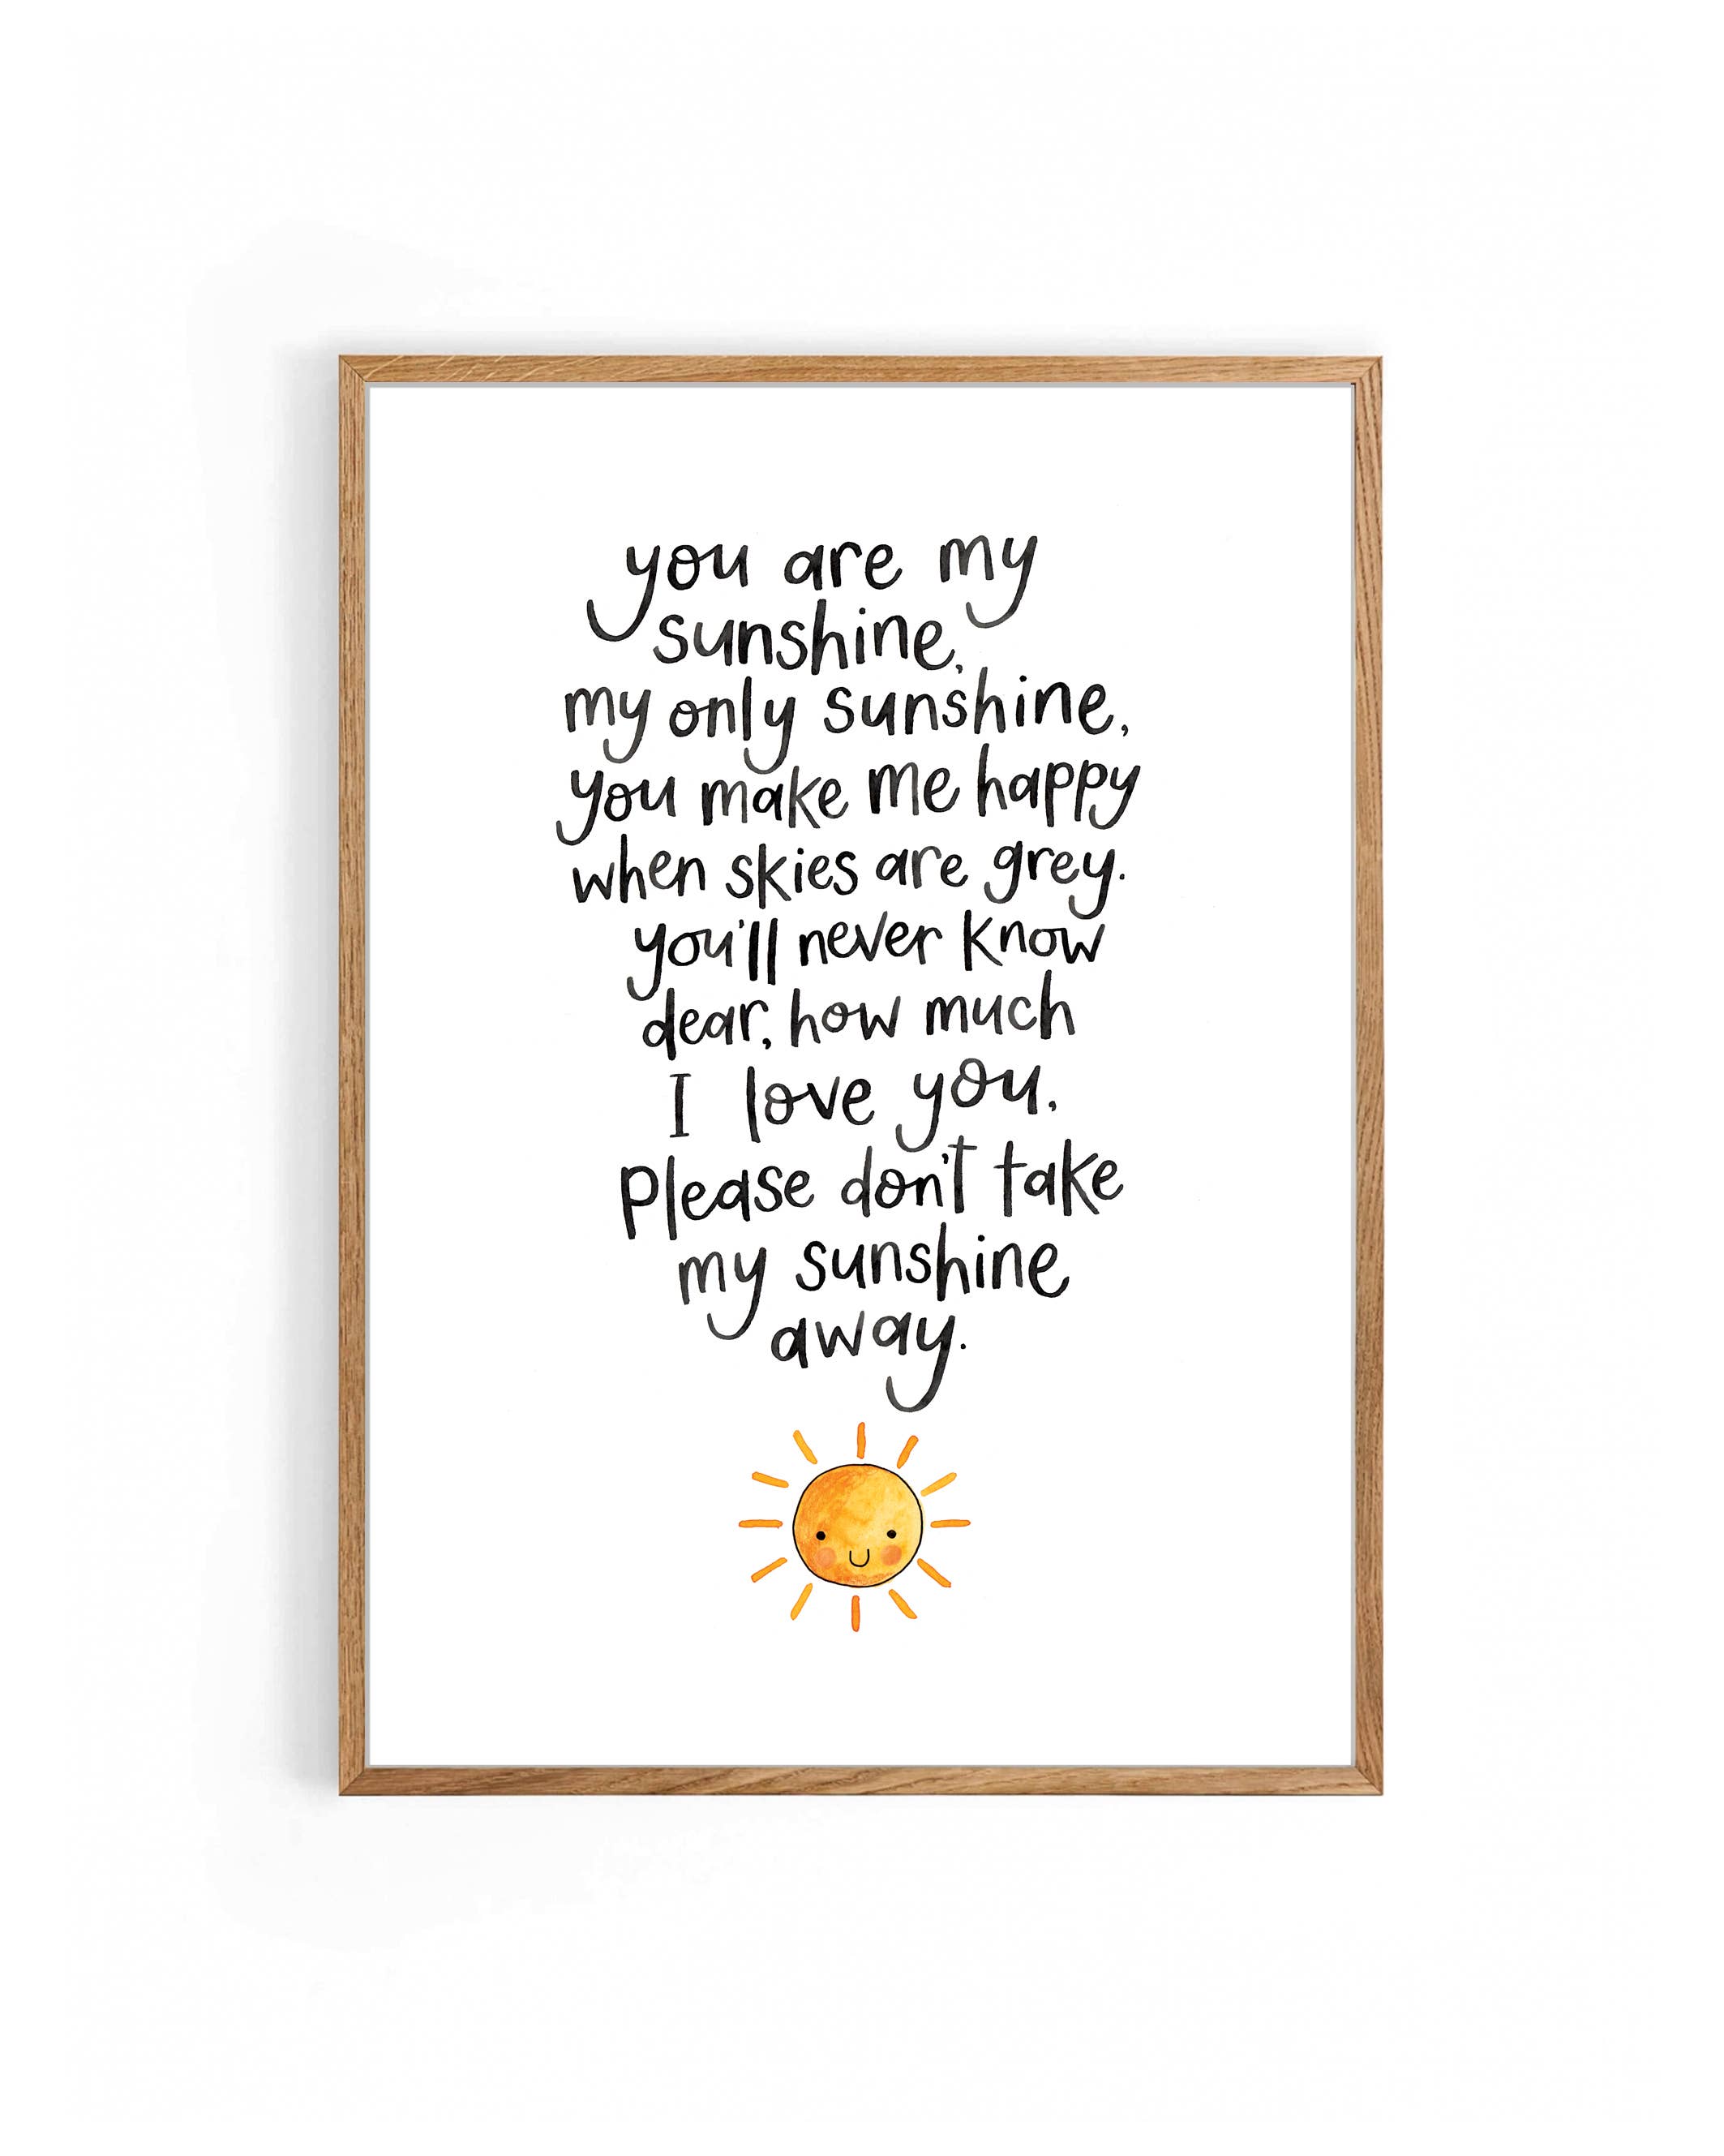 you are my
sunshine,
my only sunshine,
you make me happy
when skies are grey.
you'll never know
dear, how much
I love you,
please don't take
my sunshine
away.